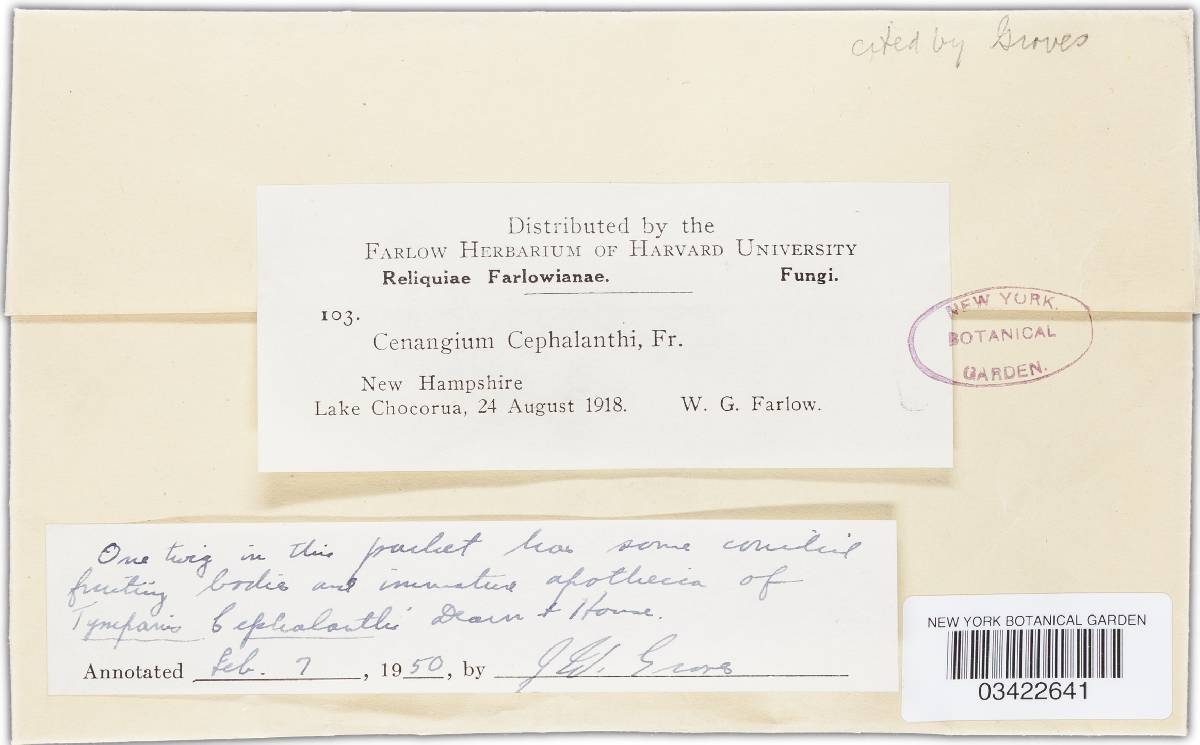 cited by Groves
Distributed by the
FARLOW HERBARIUM OF HARVARD UNIVERSITY
Reliquiae Farlowianae. Fungi.
103.
Cenangium Cephalanthi, Fr.
New Hampshire
Lake Chocorua, 24 August 1918. W. G. Farlow.
NEW YORK
BOTANICAL
GARDEN.
One twig in this packet has some conidial
fruiting bodies and immature apothecia of
Tympanis Cephalanthi Dearn & House.
Annotated Feb. 7, 1950, by J. W. Groves
NEW YORK BOTANICAL GARDEN
03422641